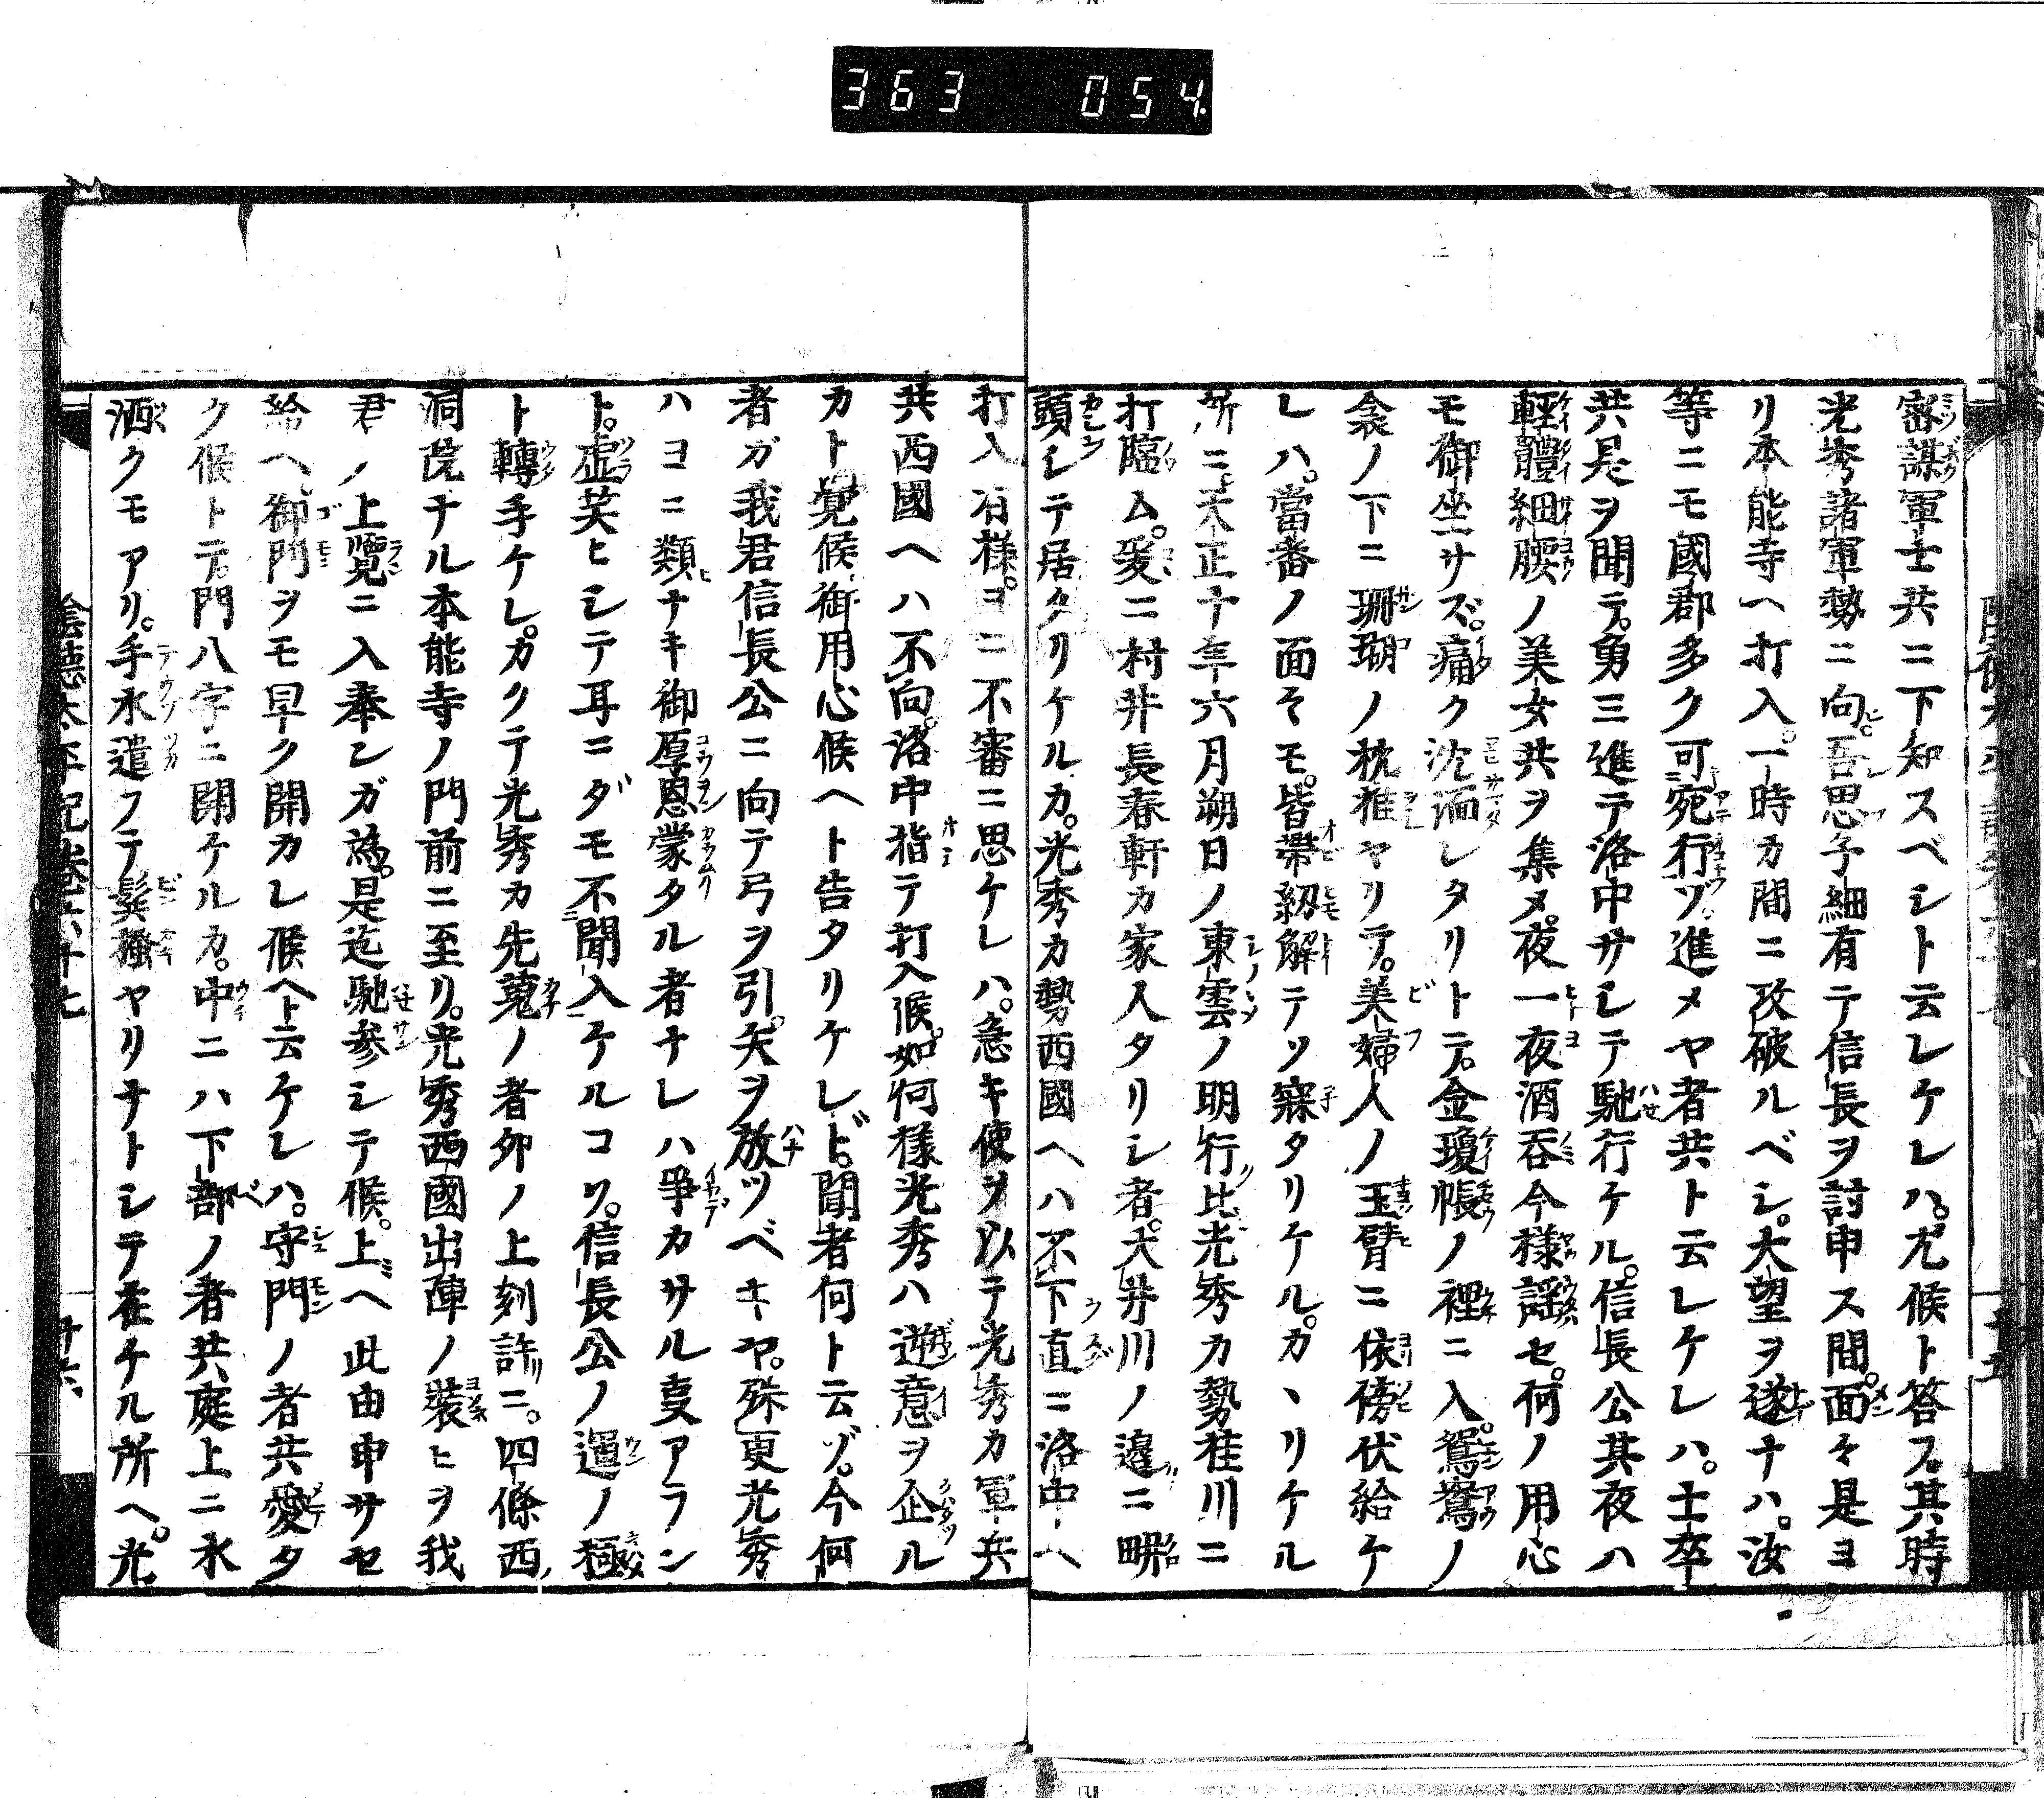 363 054
審謀軍士共ニ下知スベシト云レケレハ。尤候ト答フ。其時
光秀諸軍勢ニ向ヒ。吾思子細有テ信長ヲ討申ス間。面々是ヨ
リ本能寺ヘ打入。一時カ間ニ攻破ルベシ。大望ヲ遂ナハ。汝
等ニモ國郡多ク可宛行ソ。進メヤ者共ト云レケレハ。士卒
共是ヲ聞テ。勇三進テ洛中サシテ馳行ケル。信長公其夜ハ
輕體細腰ノ美女共ヲ集メ。夜一夜酒呑今様謡セ。何ノ用心
モ御坐サズ。痛ク沈湎シタリトテ。金瓊帳ノ裡ニ入。鴛鴦ノ
衾ノ下ニ珊瑚ノ枕推ヤリテ。美婦人ノ玉臂ニ依傍伏給ケ
レハ。當番ノ面々モ。皆帯紐解テソ寐タリケル。カヽリケル
所ニ。天正十年六月朔日ノ東雲ノ明行比。光秀カ勢桂川ニ
打臨ム。爰ニ村井長春軒カ家人タリシ者。大井川ノ邊ニ畔
頭シテ居タリケルカ。光秀カ勢西國ヘハ不下直ニ洛中ヘ
打入有様。ヨニ不審ニ思ケレハ。急キ使ヲ以テ光秀カ軍兵
共西國ヘハ不向。洛中指テ打入候。如何様光秀ハ逆意ヲ企ル
カト覚候。御用心候ヘト告タリケレド。聞者何ト云ゾ。今何
者ガ我君信長公ニ向テ弓ヲ引。矢ヲ放ツベキヤ。殊更光秀
ハヨニ類ナキ御厚恩蒙タル者ナレハ爭カサル叓アラン
ト。虚笑ヒシテ耳ニダモ不聞入ケルコソ。信長公ノ運ノ極
ト轉手ケレ。カクテ光秀カ先蒐ノ者卯ノ上刻許ニ。四條西
洞院ナル本能寺ノ門前ニ至リ。光秀西國出陣ノ装ヒヲ我
君ノ上覽ニ入奉ンガ為。是迄馳参シテ候。上ヘ此由申サセ
給ヘ。御門ヲモ早ク開カレ候ヘト云ケレハ。守門ノ者共愛タ
ク候トテ。門八字ニ開ケルカ。中ニハ下部ノ者共庭上ニ水
洒クモアリ。手水遣フテ鬢掻ヤリナトシテ在ナル所ヘ。光
陰徳太平記巻六十七
十六